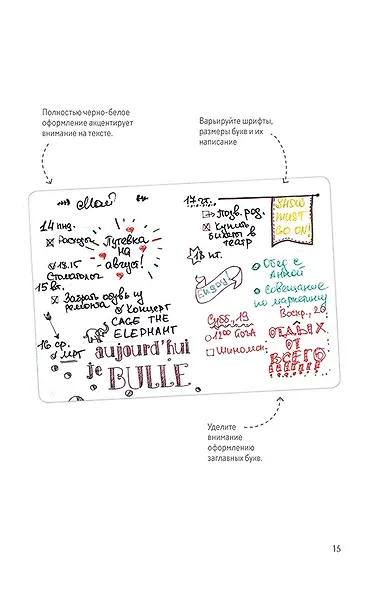 Полностью черно-белое
оформление акцентирует
внимание на тексте.
Варьируйте шрифты,
размеры букв и их
написание
Май
14 пнд.
Расходы
18.15
Стоматолог
Путевка
на
август!
15 вт.
Забрать обувь из
ремонта
Концерт
CAGE THE
ELEPHANT
16 ср.
МРТ
aujourd'hui
je
BULLE
17 чт.
Позв. род.
Купить
билеты в
театр
SHOW
MUST
GO ON!
18 пт.
ENJOY
Обед с
Анной
Совещание
по маркетингу
Субб, 19
12:00 йога
Шиномон.
Воскр., 20
ОТДЫХ
ОТ
ВСЕГО
!!!!!!!
Уделите
внимание
оформлению
заглавных букв.
15